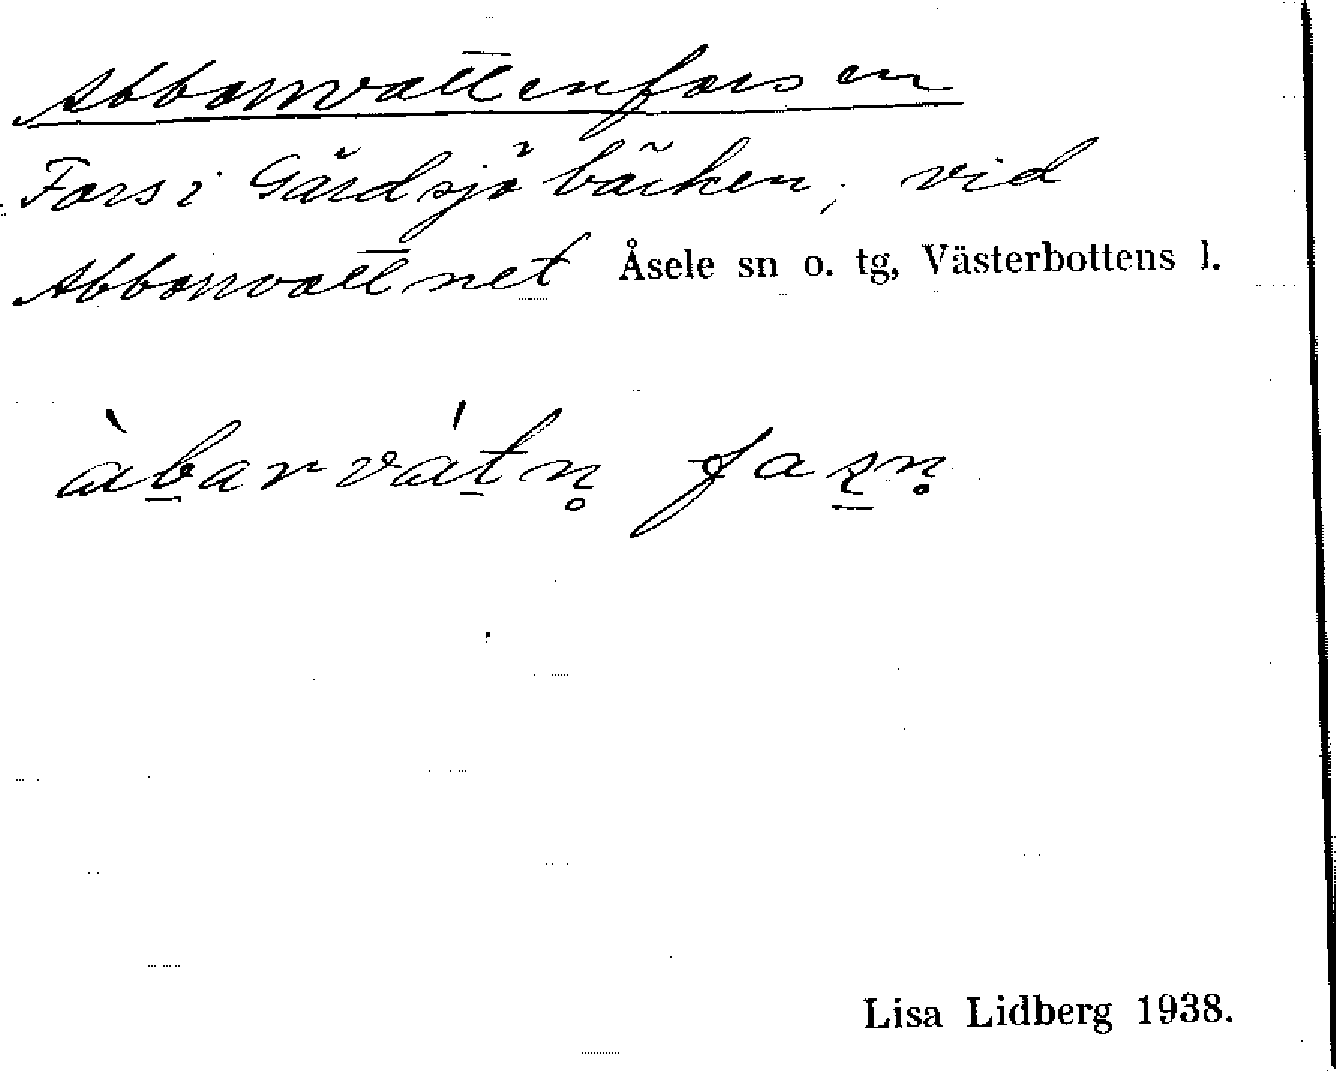 Abborrvattenforsen
Fors i Gårdsjöbäcken, vid
Abborrvattnet Åsele sn o. tg, Västerbottens l.
àbarvátn̥ fasn̥
Lisa Lidberg 1938.